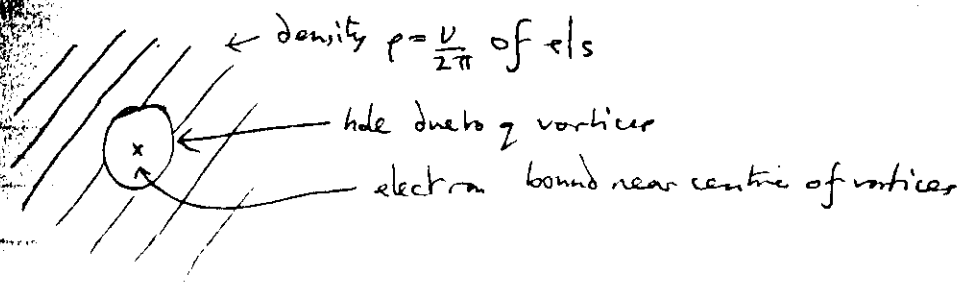 ← density ρ = ν/2π of els
hole due to q vortices
electron bound near centre of vortices
x